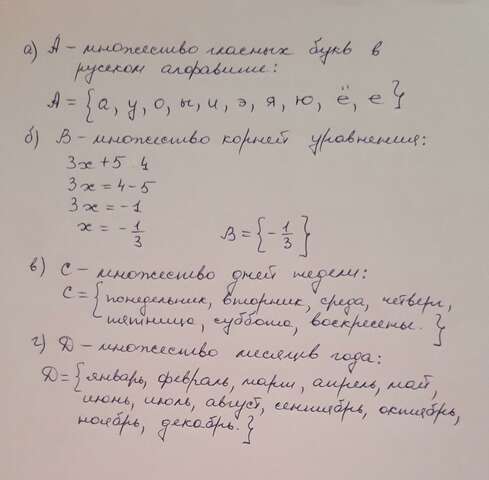 а) А – множество гласных букв в
русском алфавите:
А = {а, у, о, ы, и, э, я, ю, ё, е}
б) В – множество корней уравнения:
3x + 5 4
3x = 4 – 5
3x = –1
x = –1/3 В = {–1/3}
в) С – множество дней недели:
С = {понедельник, вторник, среда, четверг,
пятница, суббота, воскресены.}
г) Д – множество месяцев года:
Д = {январь, февраль, март, апрель, май,
июнь, июль, август, сентябрь, октябрь,
ноябрь, декабрь.}